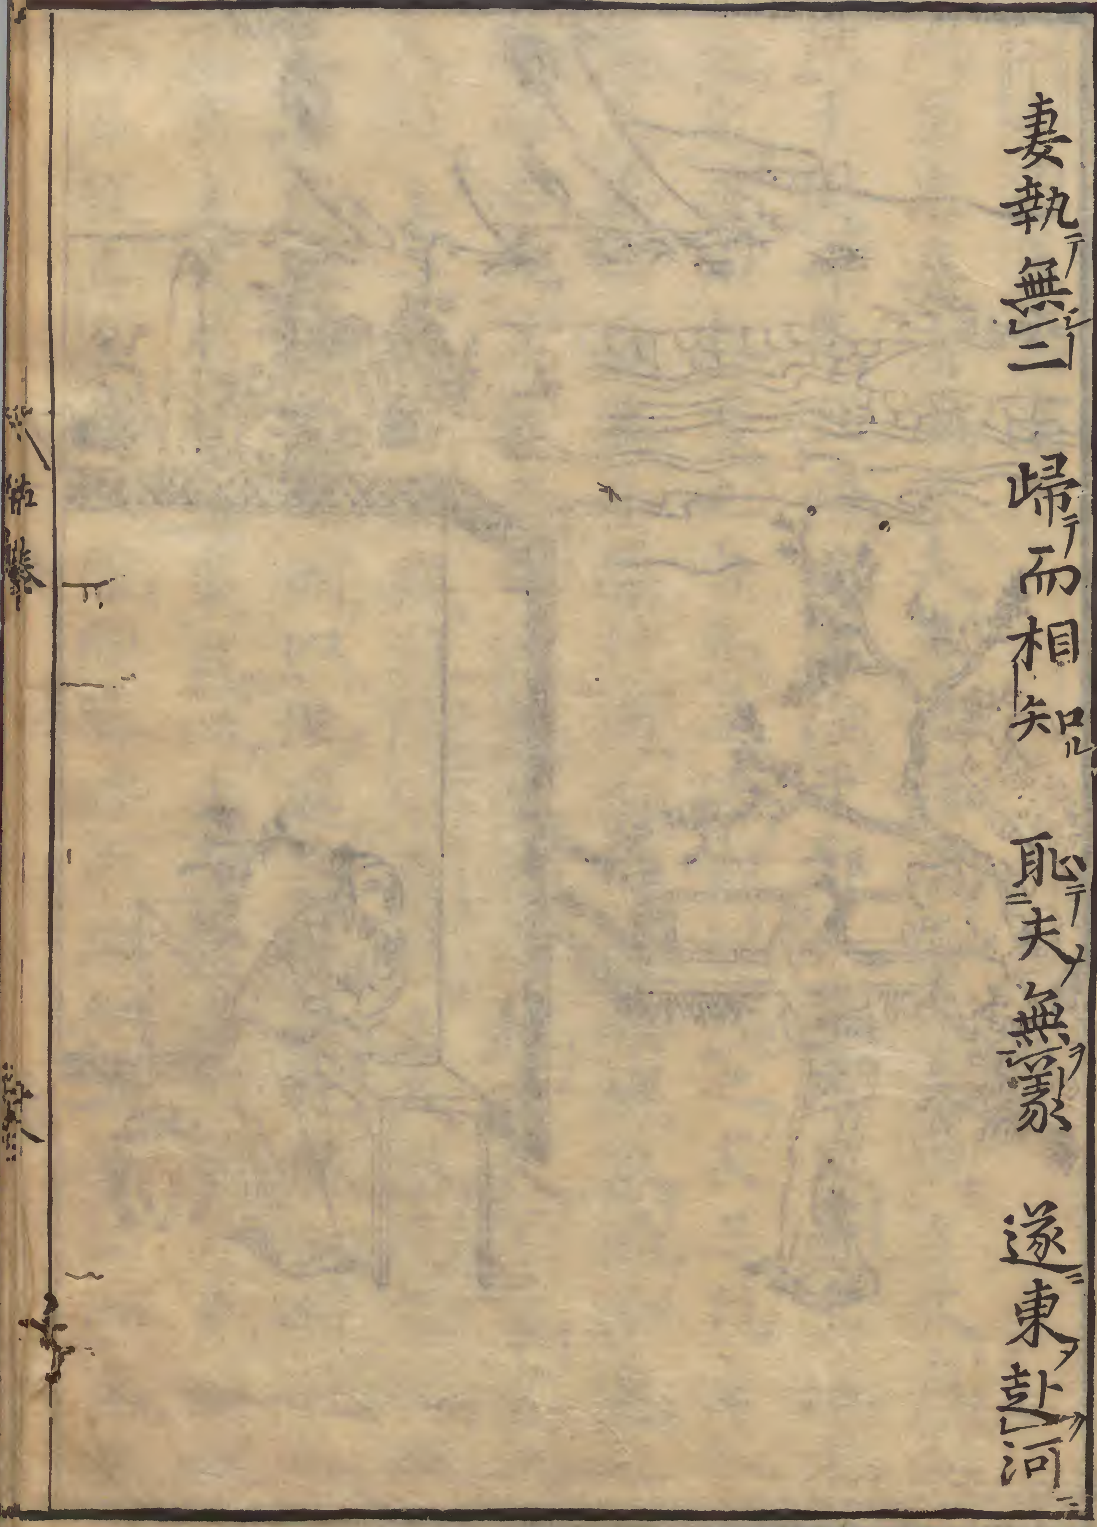 妻執無二　歸而相知　恥夫無義　遂東赴河